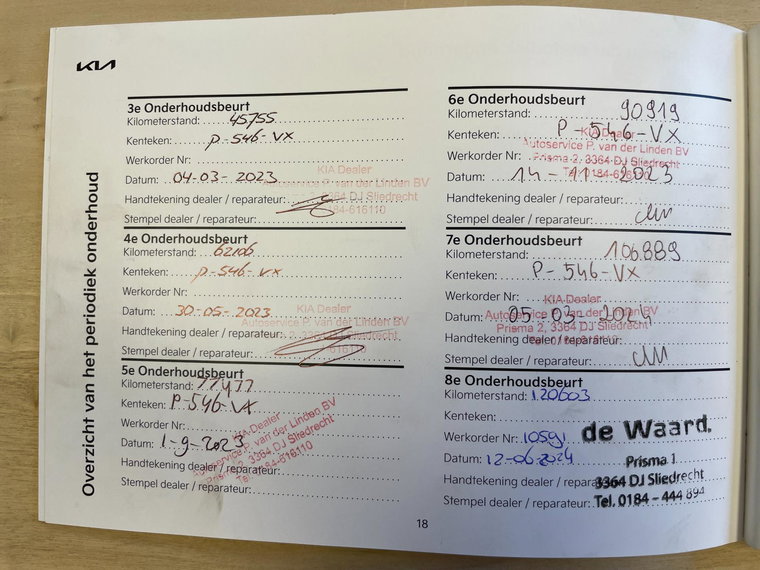 KIA
Overzicht van het periodiek onderhoud
3e Onderhoudsbeurt
Kilometerstand: 45755
Kenteken: P-546-VX
Werkorder Nr:
Datum: 04-03-2023
KIA Dealer
Autoservice P. van der Linden BV
Handtekening dealer / reparateur:
3364 DJ Sliedrecht
0184-616110
Stempel dealer / reparateur:
4e Onderhoudsbeurt
Kilometerstand: 62106
Kenteken: P-546-VX
Werkorder Nr:
Datum: 30-05-2023
KIA Dealer
Autoservice P. van der Linden BV
Handtekening dealer / reparateur:
Prisma 2, 3364 DJ Sliedrecht
616110
Stempel dealer / reparateur:
5e Onderhoudsbeurt
Kilometerstand: 77477
Kenteken: P-546-VX
Werkorder Nr:
Datum: 1-9-2023
KIA Dealer
Autoservice P. van der Linden BV
Prisma 2, 3364 DJ Sliedrecht
Tel. 0184-616110
Handtekening dealer / reparateur:
Stempel dealer / reparateur:
6e Onderhoudsbeurt
Kilometerstand: 90919
Kenteken: P-546-VX
KIA Dealer
Autoservice P. van der Linden BV
Werkorder Nr:
Prisma 2, 3364 DJ Sliedrecht
Datum: 14-11-2023
Handtekening dealer / reparateur:
Stempel dealer / reparateur:
7e Onderhoudsbeurt
Kilometerstand: 106889
Kenteken: P-546-VX
Werkorder Nr:
KIA Dealer
Autoservice P. van der Linden BV
Datum: 05-03-2024
Prisma 2, 3364 DJ Sliedrecht
Handtekening dealer / reparateur:
Stempel dealer / reparateur:
8e Onderhoudsbeurt
Kilometerstand: 120603
Kenteken:
Werkorder Nr: 10591
de Waard.
Datum: 12-06-2024
Prisma 1
Handtekening dealer / reparateur:
3364 DJ Sliedrecht
Stempel dealer / reparateur:
Tel. 0184 - 444 894
18